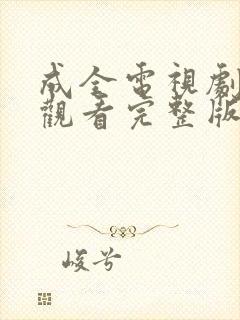 成全電視劇
觀看完整版
峻兮